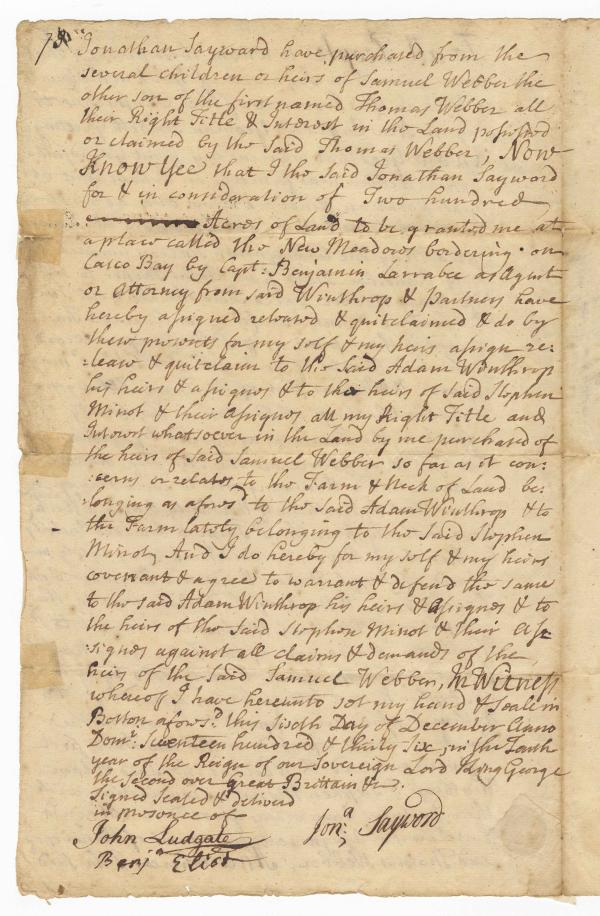 Jonathan Sayward have purchased from the
several children or heirs of Samuel Webber the
other son of the first named Thomas Webber all
their Right Title & Interest in the Land possessed
or claimed by the Said Thomas Webber, Now
Know Yee that I the said Jonathan Sayword
for & in consideration of Two hundred
Acres of Land to be granted me at
a place called the New Meadows bordering on
Casco Bay by Capt: Benjamin Larrabee as Agent
or Attorney from said Winthrop & Partners have
hereby assigned released & quitclaimed & do by
these presents for my self & my heirs assign re:
:lease & quitclaim to the Said Adam Winthrop
his heirs & assignes & to the heirs of Said Stephen
Minot & their Assignes all my Right Title and
Interest whatsoever in the Land by me purchased of
the heirs of said Samuel Webber so far as it con:
:cerns or relates to the Farm & Neck of Land be:
:longing as afores.d to the said Adam Winthrop & to
the Farm lately belonging to the Said Stephen
Minot, And I do hereby for my self & my heirs
covenant & agree to warrant & defend the same
to the said Adam Winthrop his heirs & Assignes & to
the heirs of the Said Stephen Minot & their Ass:
:signes against all claims & demands of the
heirs of the Said Samuel Webber, In Witness
whereof I have hereunto set my hand & Seale in
Boston afores.d this Sixth Day of December Anno
Dom.i: Seventeen hundred & thirty Six, in the Tenth
year of the Reign of our Sovereign Lord King George
the Second over Great Brittain &c.
Signed Sealed & deliverd
in presence of
Jon.a Sayword
John Ludgate
Benj.a Eliot